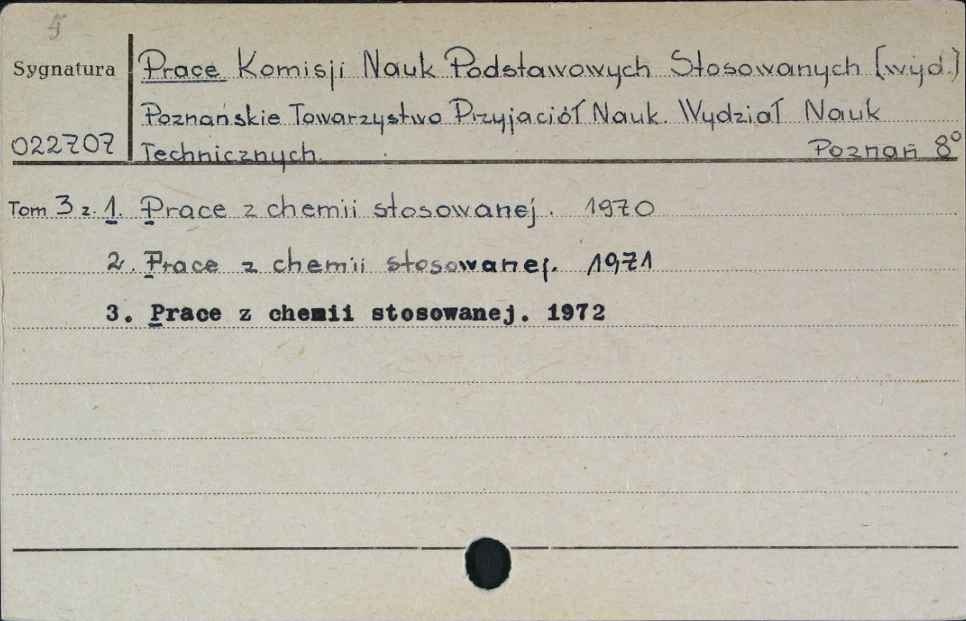 5
Sygnatura Prace Komisji Nauk Podstawowych Stosowanych [wyd.]
Poznańskie Towarzystwo Przyjaciół Nauk. Wydział Nauk
022707 Technicznych. Poznań 8°
Tom 3 z. 1. Prace z chemii stosowanej. 1970
2. Prace z chemii stosowanej. 1971
3. Prace z chemii stosowanej. 1972